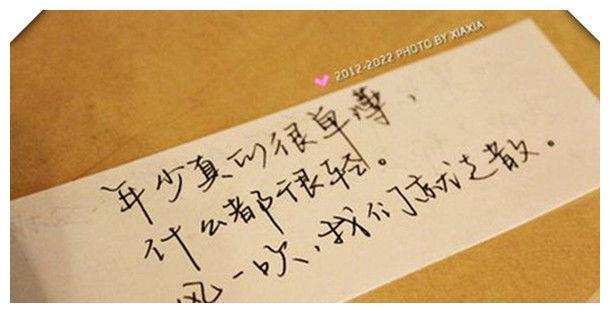 2012-2022 PHOTO BY XIAXIA
年少真的很单薄，
什么都很轻。
风一吹，我们就走散。